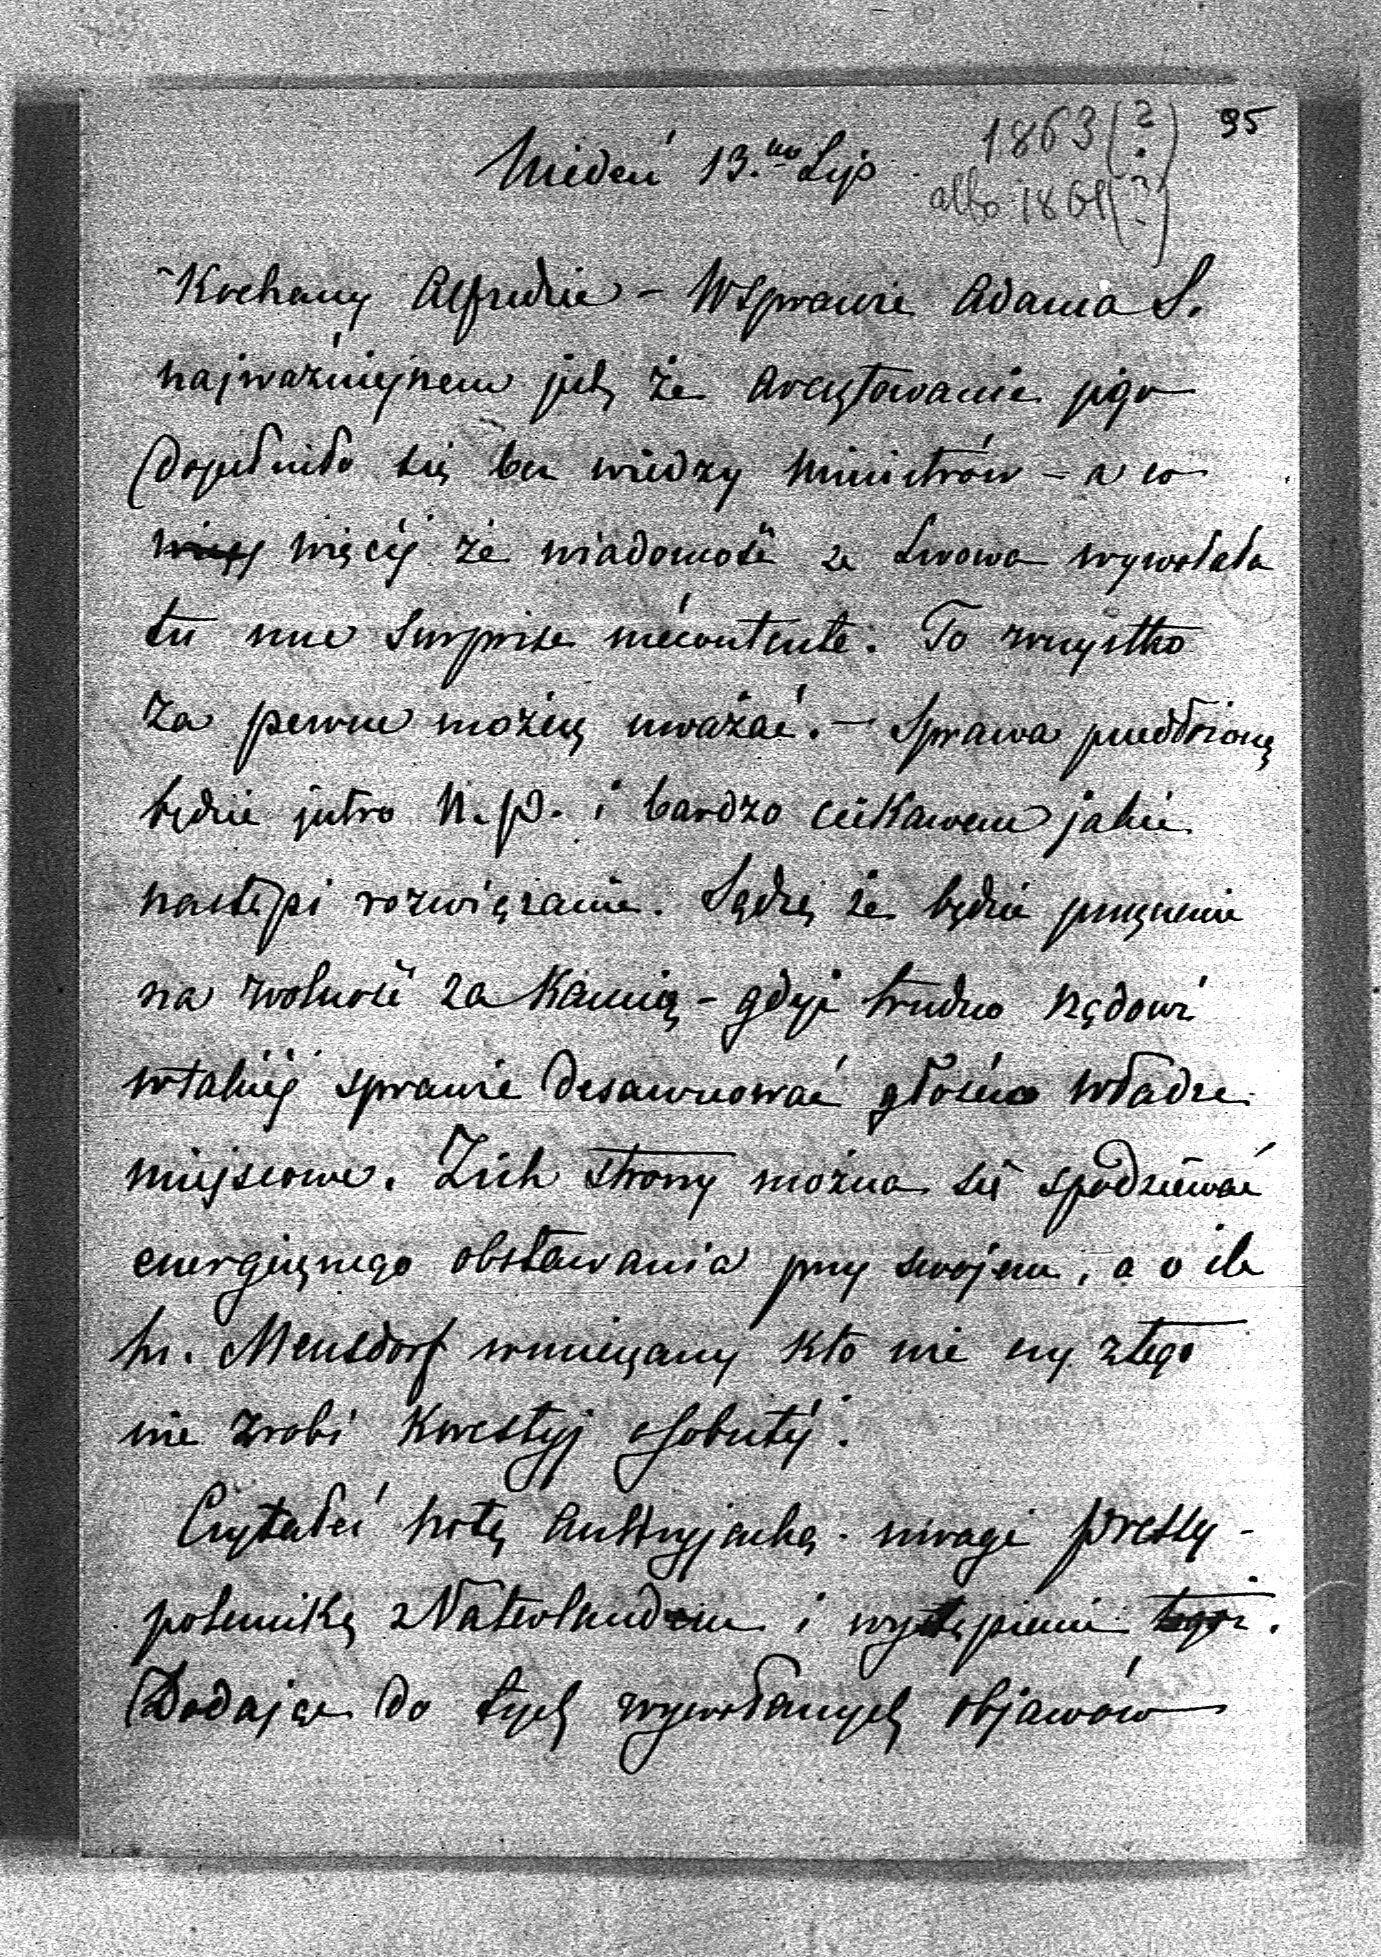 95
1863(?)
albo 1861(?)
Wiedeń 13.go Lip.
Kochany Alfredzie – W sprawie Adama S.
najważniejszem jest, że aresztowanie jego
dopełniło się bez wiedzy Ministrów – a co
więcej więcej że wiadomość ze Lwowa wywołała
tu une surprise mécontente. To wszystko
za pewne możesz uważać. – Sprawa przedłożoną
będzie jutro N. P. i bardzo ciekawem jakie
nastąpi rozwiązanie. Sądzę że będzie puszczenie
na wolność za kaucją – gdyż trudno rządowi
w takiéj sprawie desawuować głośno władze
miejscowe. Z ich strony można się spodziewać
energicznego obstawania przy swojem, a o ile
hr. Mensdorf wmieszany kto wie czy z tego
nie zrobi kwestyj osobistéj.
Czytałeś notę austryjacką – uwagi Pressy –
polemikę z Vaterlandem i wystąpienie tegoż.
Dodając do tych wywołanych objawów